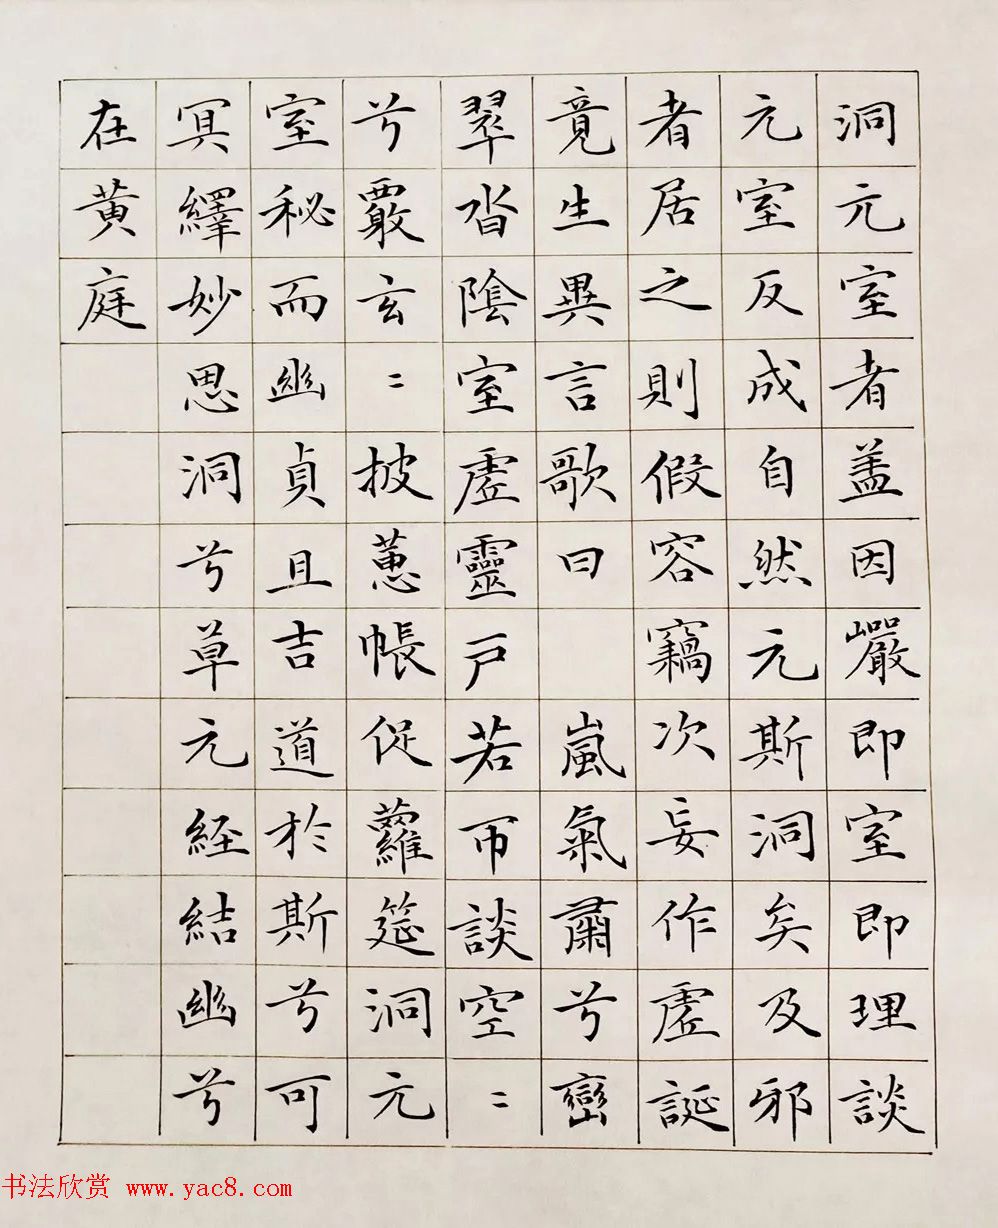 洞元室者盖因巖即室即理談
元室反成自然元斯洞矣及邪
者居之則假容竊次妄作虛誕
竟生異言歌曰 嵐氣肅兮巒
翠沓陰室虛靈戶若帀談空〻
兮覈玄〻披蕙帳促蘿筵洞元
室秘而幽貞且吉道於斯兮可
冥繹妙思洞兮草元経結幽兮
在黄庭
书法欣赏 www.yac8.com